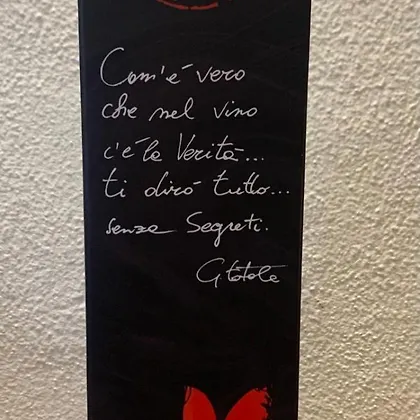 Com'è vero
che nel vino
c'è la Verità...
ti dirò tutto...
senza Segreti.